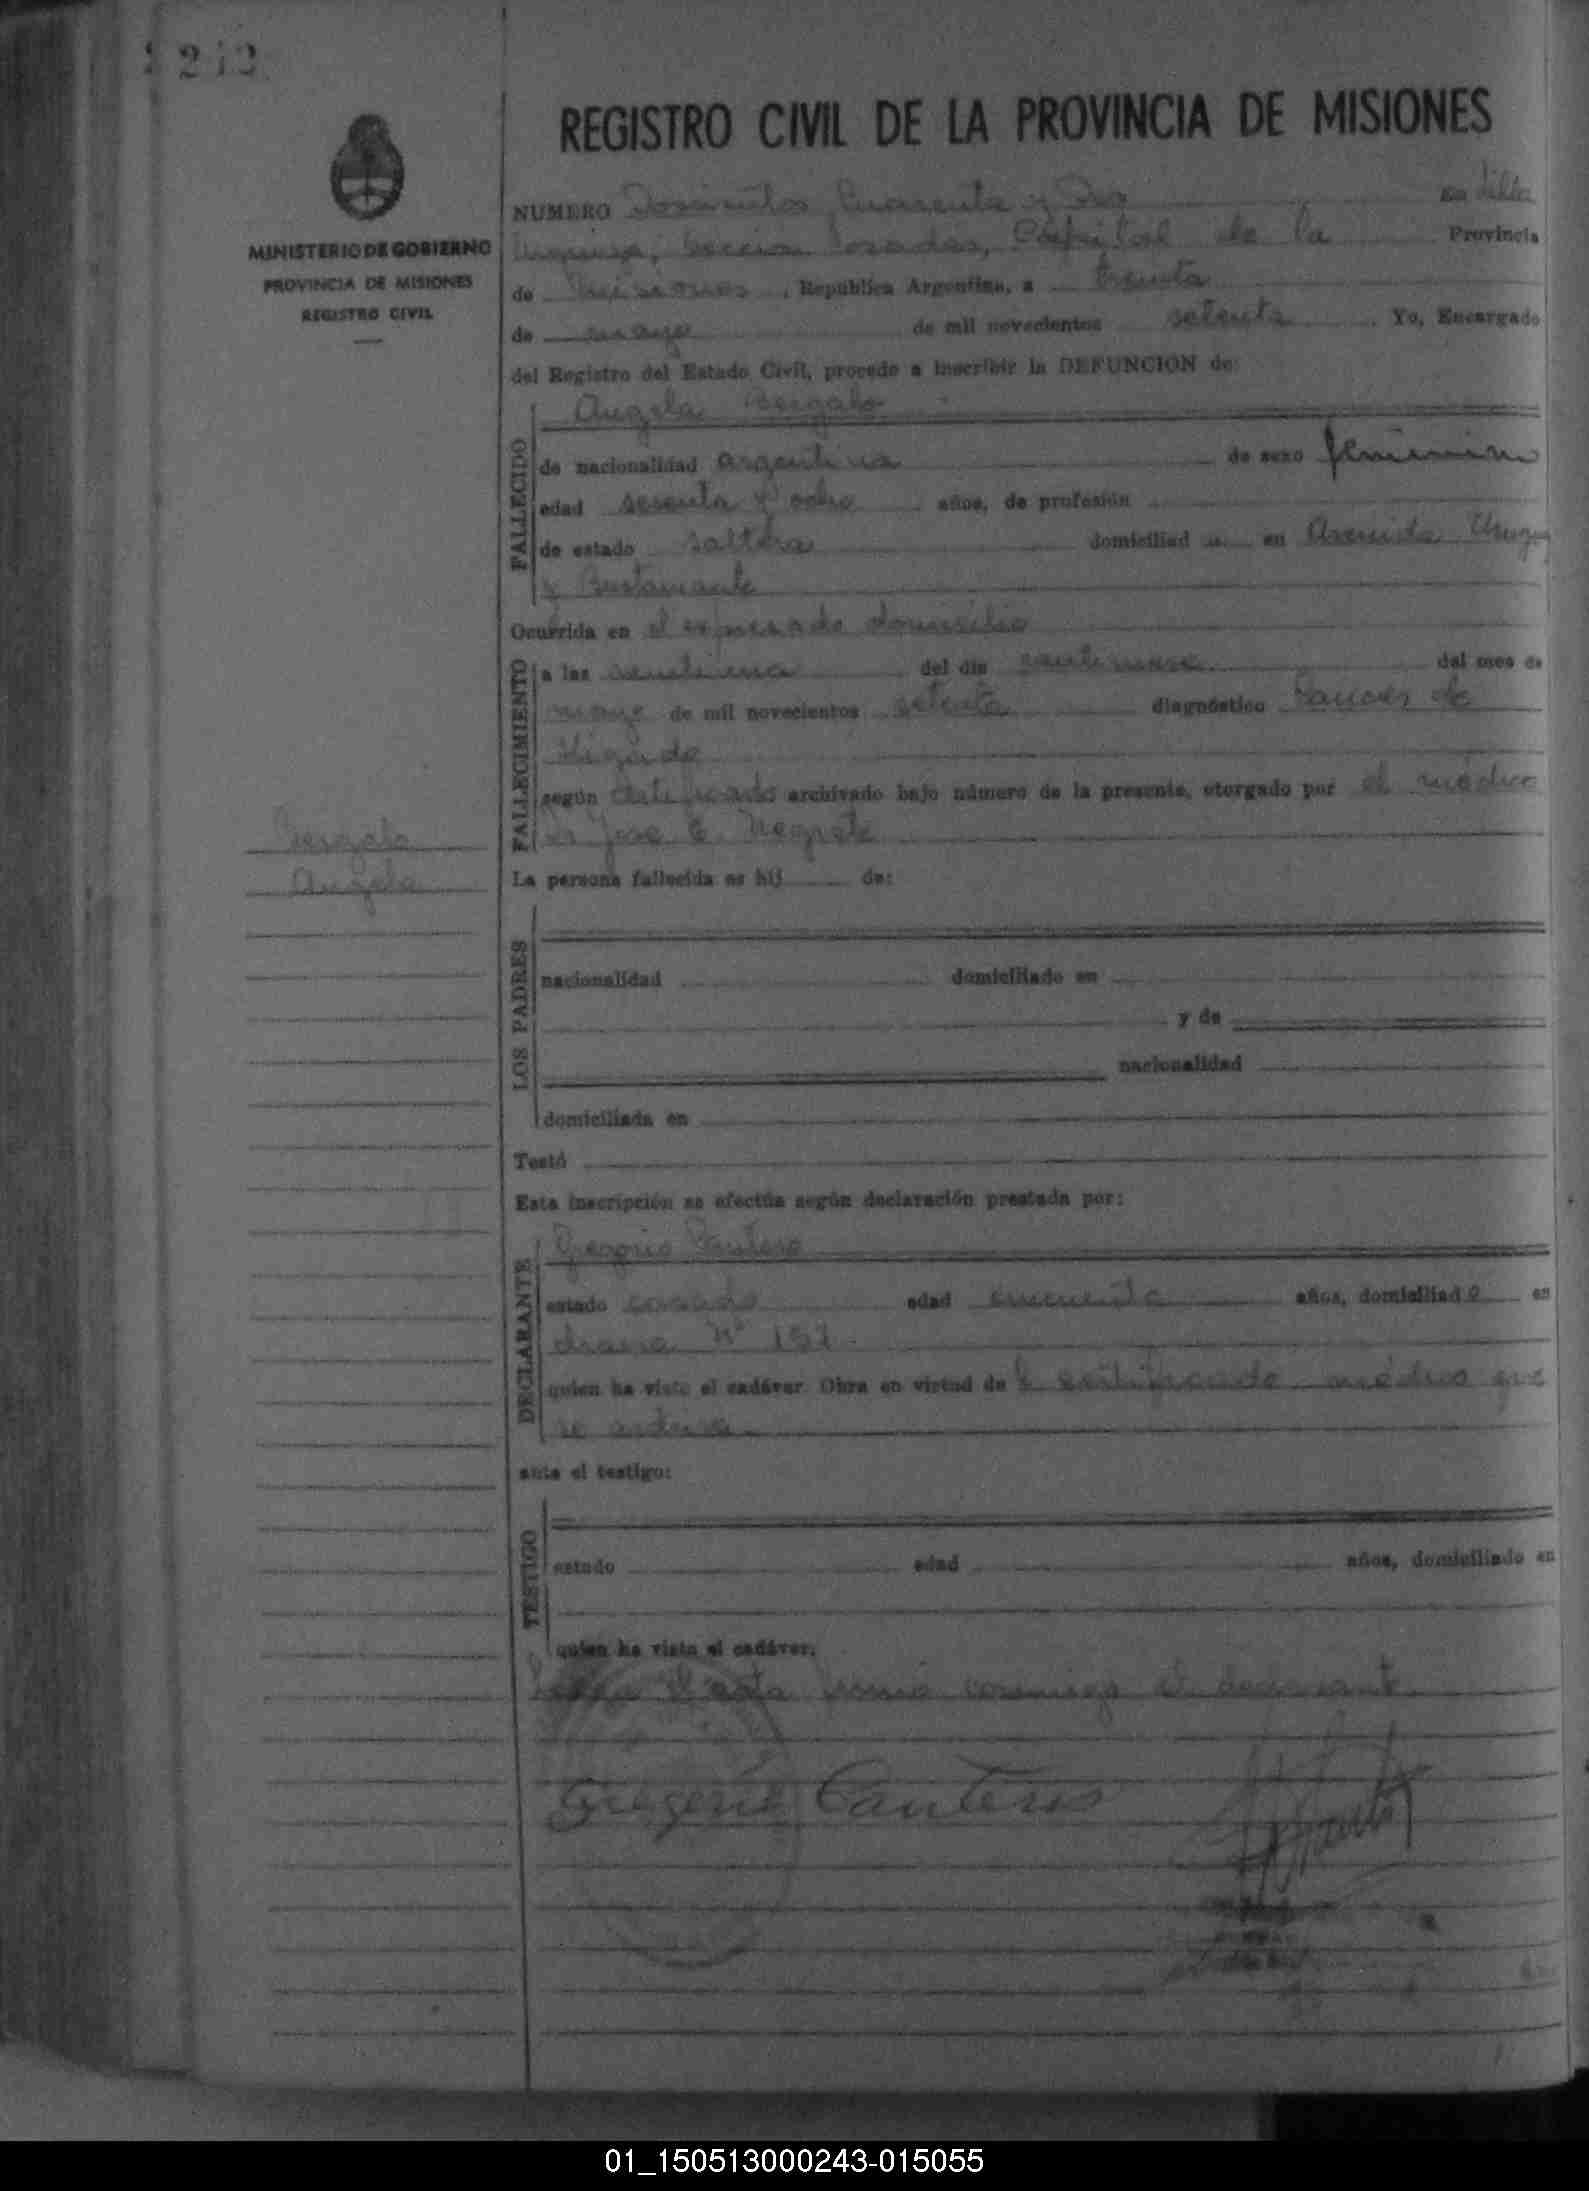 242
REGISTRO CIVIL DE LA PROVINCIA DE MISIONES
MINISTERIO DE GOBIERNO
PROVINCIA DE MISIONES
REGISTRO CIVIL
NUMERO Doscientos Cuarenta y Dos en Villa
Urquiza, Sección Posadas, Capital de la Provincia
de Misiones, República Argentina, a treinta
de mayo de mil novecientos setenta. Yo, Encargado
del Registro del Estado Civil, procedo a inscribir la DEFUNCION de:
Angela
FALLECIDO
de nacionalidad argentina de sexo femenino
edad sesenta y ocho años, de profesión
de estado soltera domiciliad a en Avenida
y Bustamante
Ocurrida en el expresado domicilio
FALLECIMIENTO
a las del día del mes de
mayo de mil novecientos setenta diagnóstico Cancer de
Higado
según certificado archivado bajo número de la presente, otorgado por el médico
Dr Jose E. Negrete
Angela
La persona fallecida es hij de:
LOS PADRES
nacionalidad domiciliado en
y de
nacionalidad
domiciliada en
Testó
Esta inscripción se efectúa según declaración prestada por:
DECLARANTE
Gregorio Cantero
estado casado edad cincuenta años, domiciliad o en
chacra Nº 157
quien ha visto el cadáver. Obra en virtud de l certificado médico que
se archiva.
ante el testigo:
TESTIGO
estado edad años, domiciliado en
quien ha visto el cadáver.
el acta firmó conmigo el declarante
Gregorio Canteros
01_150513000243-015055